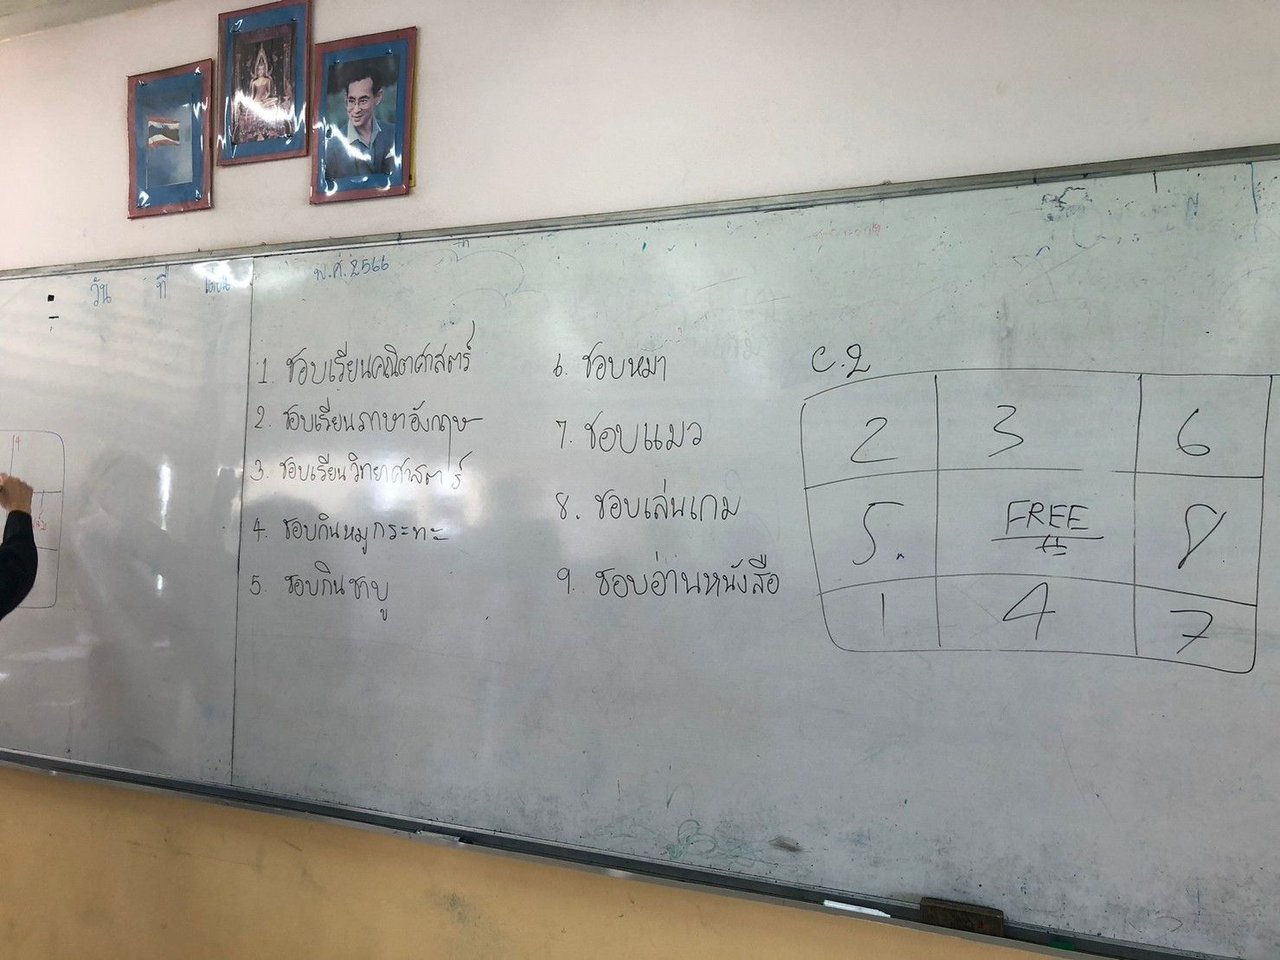 วัน ที่ เดือน พ.ศ. 2566
1. ชอบเรียนคณิตศาสตร์
2. ชอบเรียนภาษาอังกฤษ
3. ชอบเรียนวิทยาศาสตร์
4. ชอบกินหมูกระทะ
5. ชอบกินชาบู
6. ชอบหมา
7. ชอบแมว
8. ชอบเล่นเกม
9. ชอบอ่านหนังสือ
2 3 6
5. FREE 8
1 4 7
4